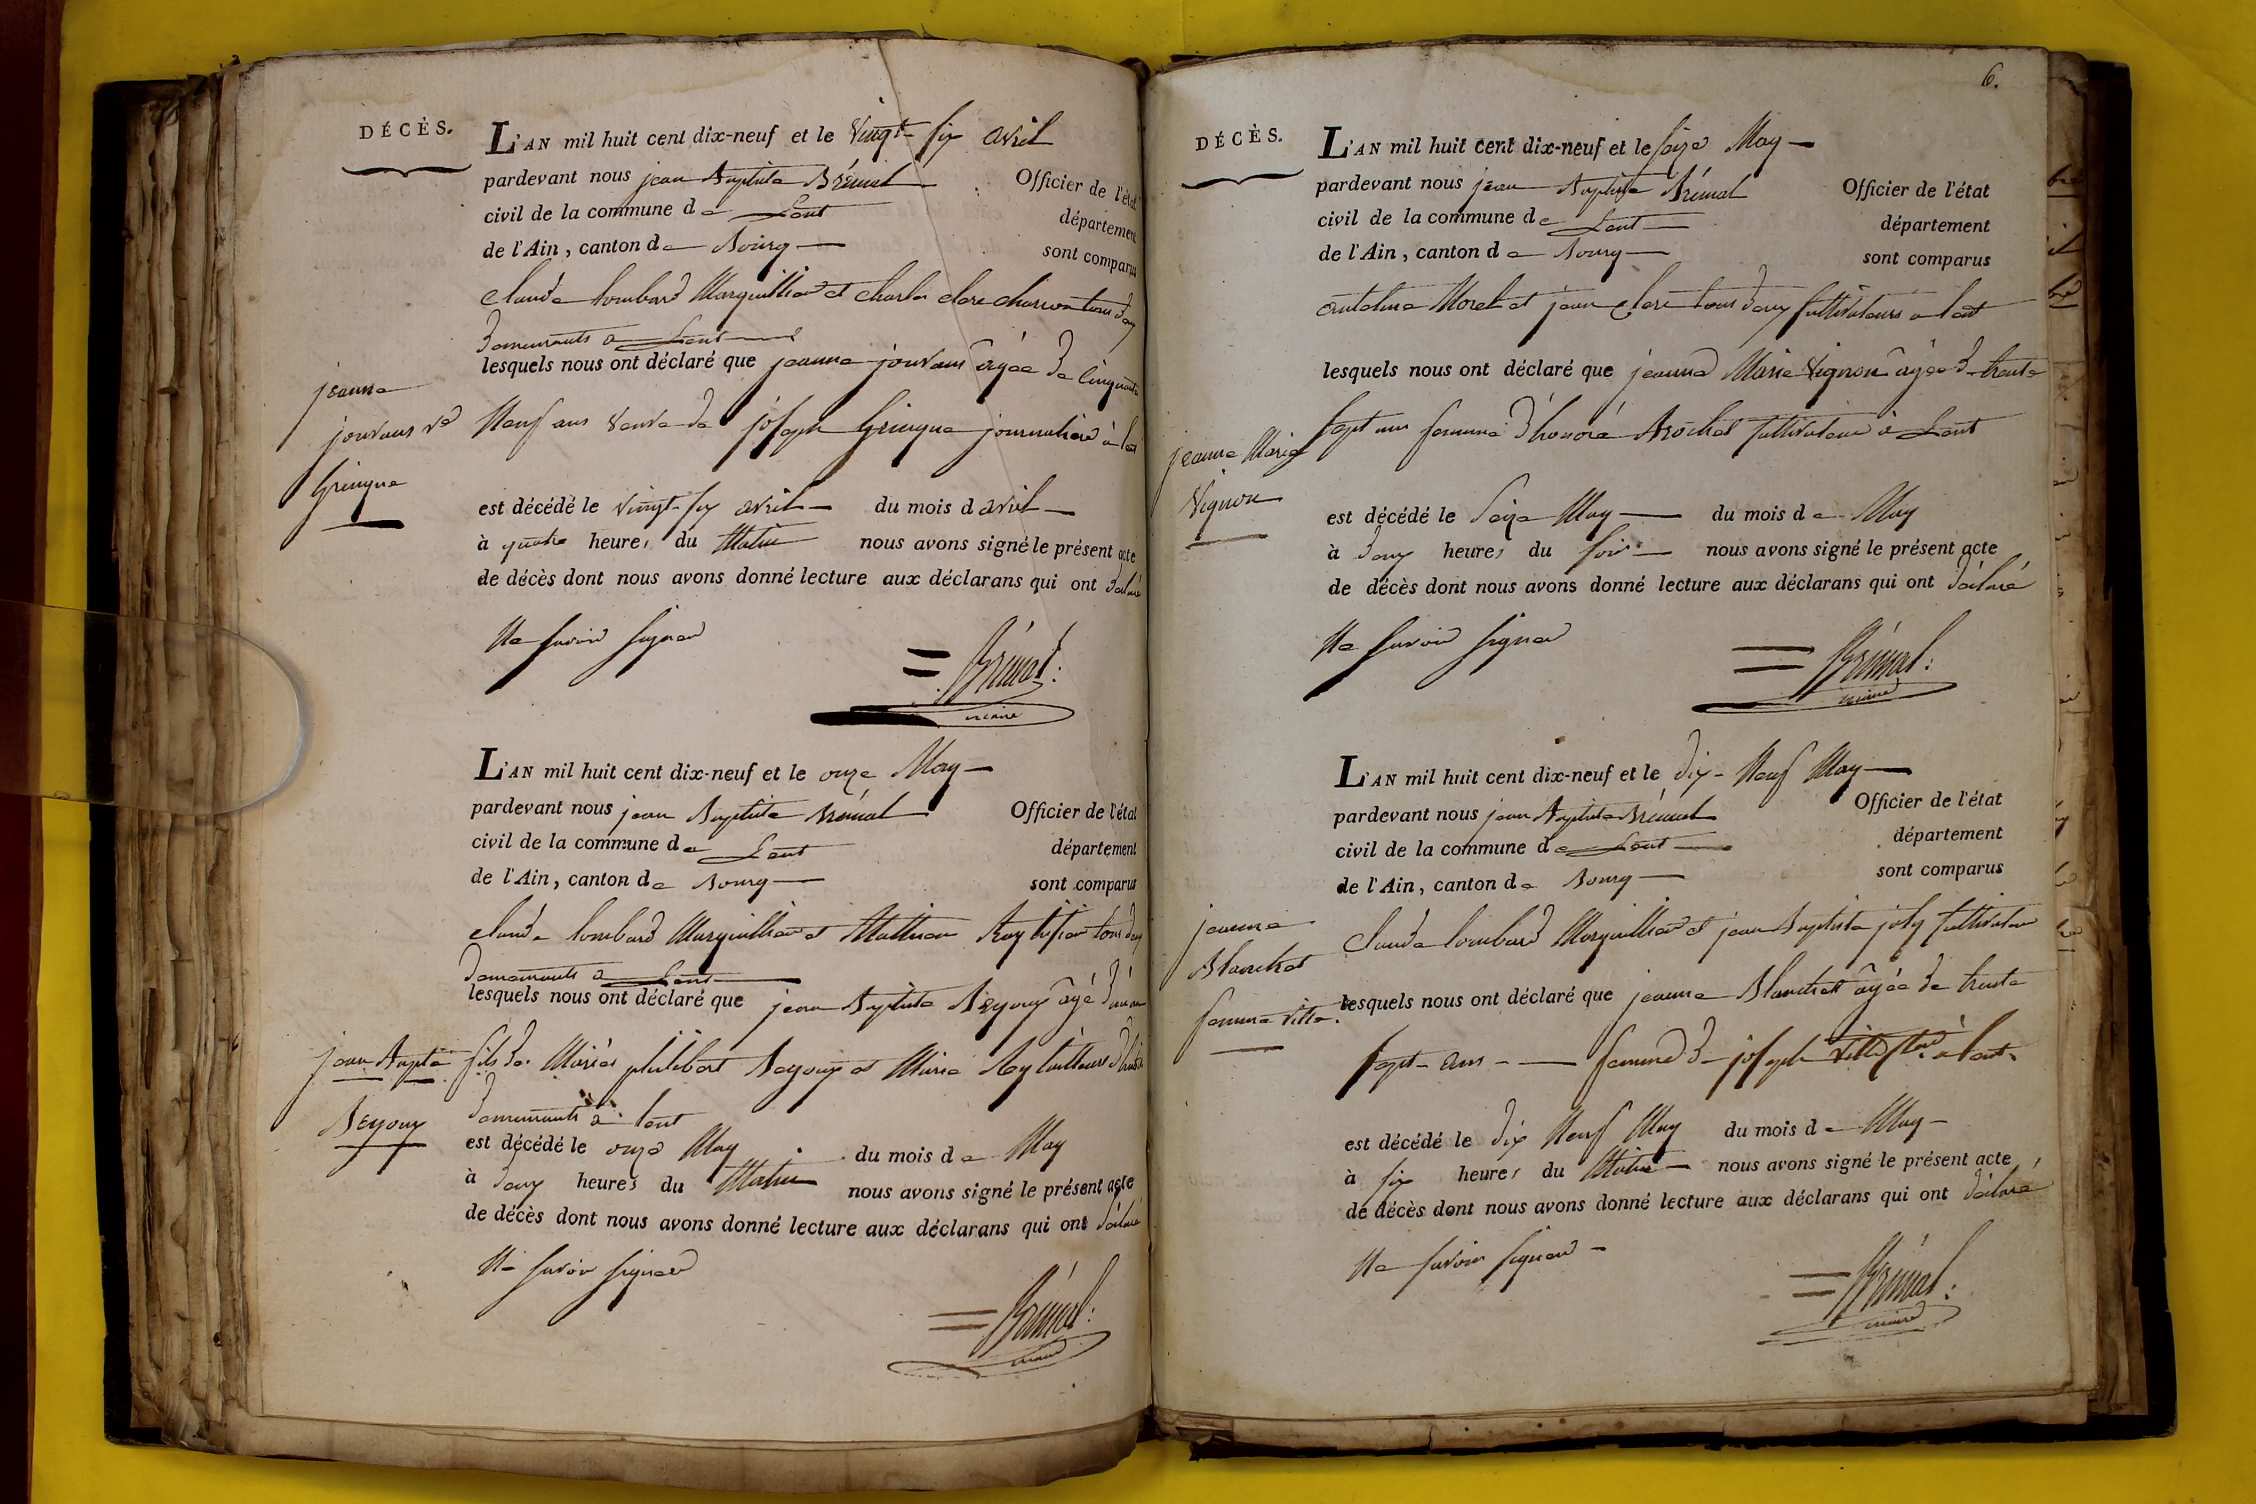 DÉCÈS.
L'AN mil huit cent dix-neuf et le vingt-six avril
pardevant nous jean Baptiste Brémal Officier de l'état
civil de la commune de Lent département
de l'Ain, canton de Bourg sont comparus
Claude Lombard Marguillier et Charles Clere charron tous deux
demeurants a Lent
lesquels nous ont déclaré que jeanne jouvans âgée de Cinquante
Neuf ans veuve de joseph Gringue journaliere à Lent
jeanne
jouvans ve
Gringue
est décédé le vingt-six avril du mois d avril
à quatre heures du Matin nous avons signé le présent acte
de décès dont nous avons donné lecture aux déclarans qui ont déclaré
Ne savoir signer
Brémal
maire
L'AN mil huit cent dix-neuf et le onze May
pardevant nous jean Baptiste Brémal Officier de l'état
civil de la commune de Lent département
de l'Ain, canton de Bourg sont comparus
Claude Lombard Marguillier et Mathieu Ray tous deux
demeurants a Lent
lesquels nous ont déclaré que jean Baptiste Beyoux âgé d'un an
fils de Mariés philibert Beyoux et Marie Rey
demeurants à Lent
jean Bapte
Beyoux
est décédé le onze May du mois de May
à deux heures du Matin nous avons signé le présent acte
de décès dont nous avons donné lecture aux déclarans qui ont déclaré
Ne savoir signer
Brémal
maire
6.
DÉCÈS.
L'AN mil huit cent dix-neuf et le seize May
pardevant nous jean Baptiste Brémal Officier de l'état
civil de la commune de Lent département
de l'Ain, canton de Bourg sont comparus
Morel et jean Clere tous deux Cultivateurs a Lent
lesquels nous ont déclaré que jeanne Marie Vignon âgée de trente
sept ans femme d'honoré Brochet Cultivateur à Lent
jeanne Marie
Vignon
est décédé le Seize May du mois de May
à deux heures du soir nous avons signé le présent acte
de décès dont nous avons donné lecture aux déclarans qui ont déclaré
Ne savoir signer
Brémal
maire
L'AN mil huit cent dix-neuf et le dix-Neuf May
pardevant nous jean Baptiste Brémal Officier de l'état
civil de la commune de Lent département
de l'Ain, canton de Bourg sont comparus
Claude Lombard Marguillier et jean Baptiste joly Cultivateur
lesquels nous ont déclaré que jeanne Blanchet âgée de trente
sept ans femme de joseph Ville a Lent
jeanne
Blanchet
femme Ville.
est décédé le dix Neuf May du mois de May
à six heures du Matin nous avons signé le présent acte
de décès dont nous avons donné lecture aux déclarans qui ont déclaré
Ne savoir signer
Brémal
maire